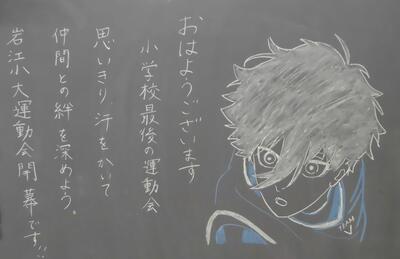 おはようございます
小学校最後の運動会
思いきり汗をかいて
仲間との絆を深めよう。
岩江小大運動会開幕です!!